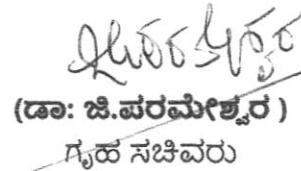 (ಡಾ: ಜಿ.ಪರಮೇಶ್ವರ )
ಗೃಹ ಸಚಿವರು